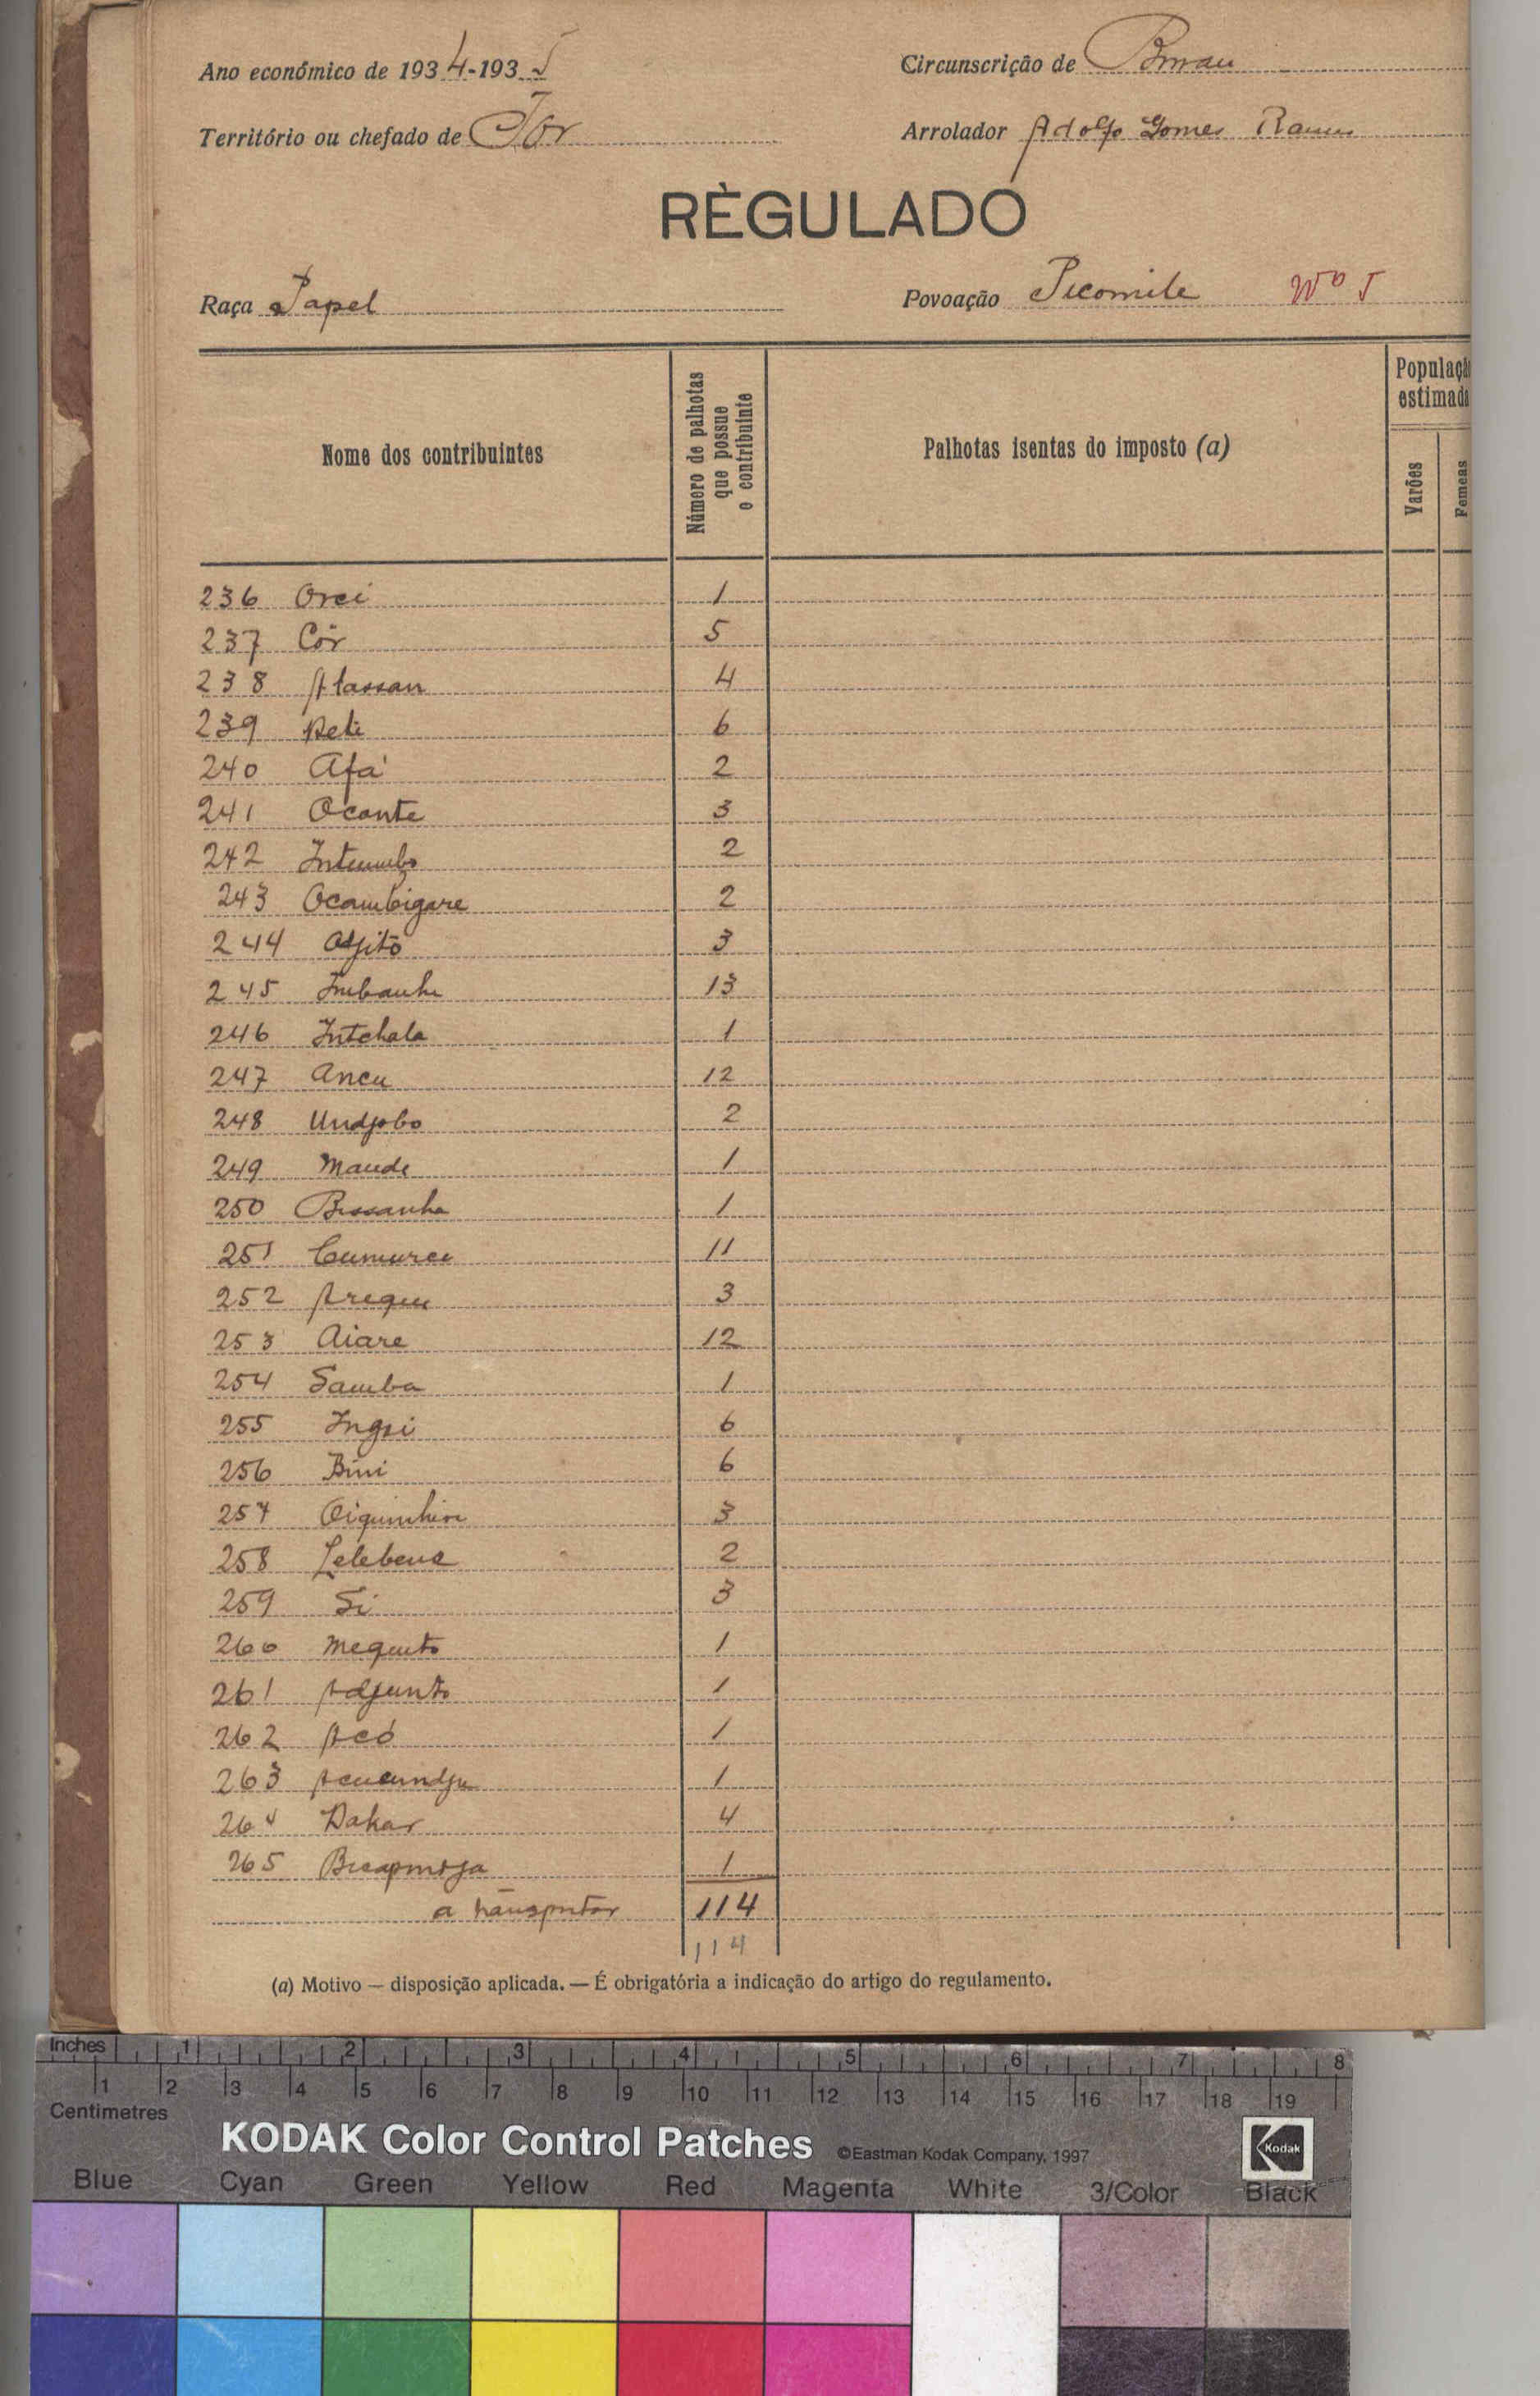 Ano económico de 1934-1935
Circunscrição de
Território ou chefado de Tor
Arrolador Adolfo Gomes Ramos
RÈGULADO
Raça Papel
Povoação Nº 5
Nome dos contribuintes
Número de palhotas que possue o contribuinte
Palhotas isentas do imposto (a)
Populaçã
estimada
Varões
Femeas
236 Orei 1
237 Côr 5
238 Alassan 4
239 Beti 6
240 Afá 2
241 Oconte 3
242 2
243 Ocambigare 2
244 3
245 13
246 Intchala 1
247 Ancu 12
248 Undjobo 2
249 Maude 1
250 Bissanha 1
251 11
252 Arequu 3
253 Aiare 12
254 Samba 1
255 6
256 Bini 6
257 3
258 2
259 Si 3
260 Mequito 1
261 Adjunto 1
262 Acó 1
263 1
264 Dakar 4
265 1
a transportar 114
114
(a) Motivo — disposição aplicada. — É obrigatória a indicação do artigo do regulamento.
Inches 1 2 3 4 5 6 7 8
1 2 3 4 5 6 7 8 9 10 11 12 13 14 15 16 17 18 19
Centimetres
KODAK Color Control Patches ©Eastman Kodak Company, 1997 Kodak
Blue Cyan Green Yellow Red Magenta White 3/Color Black